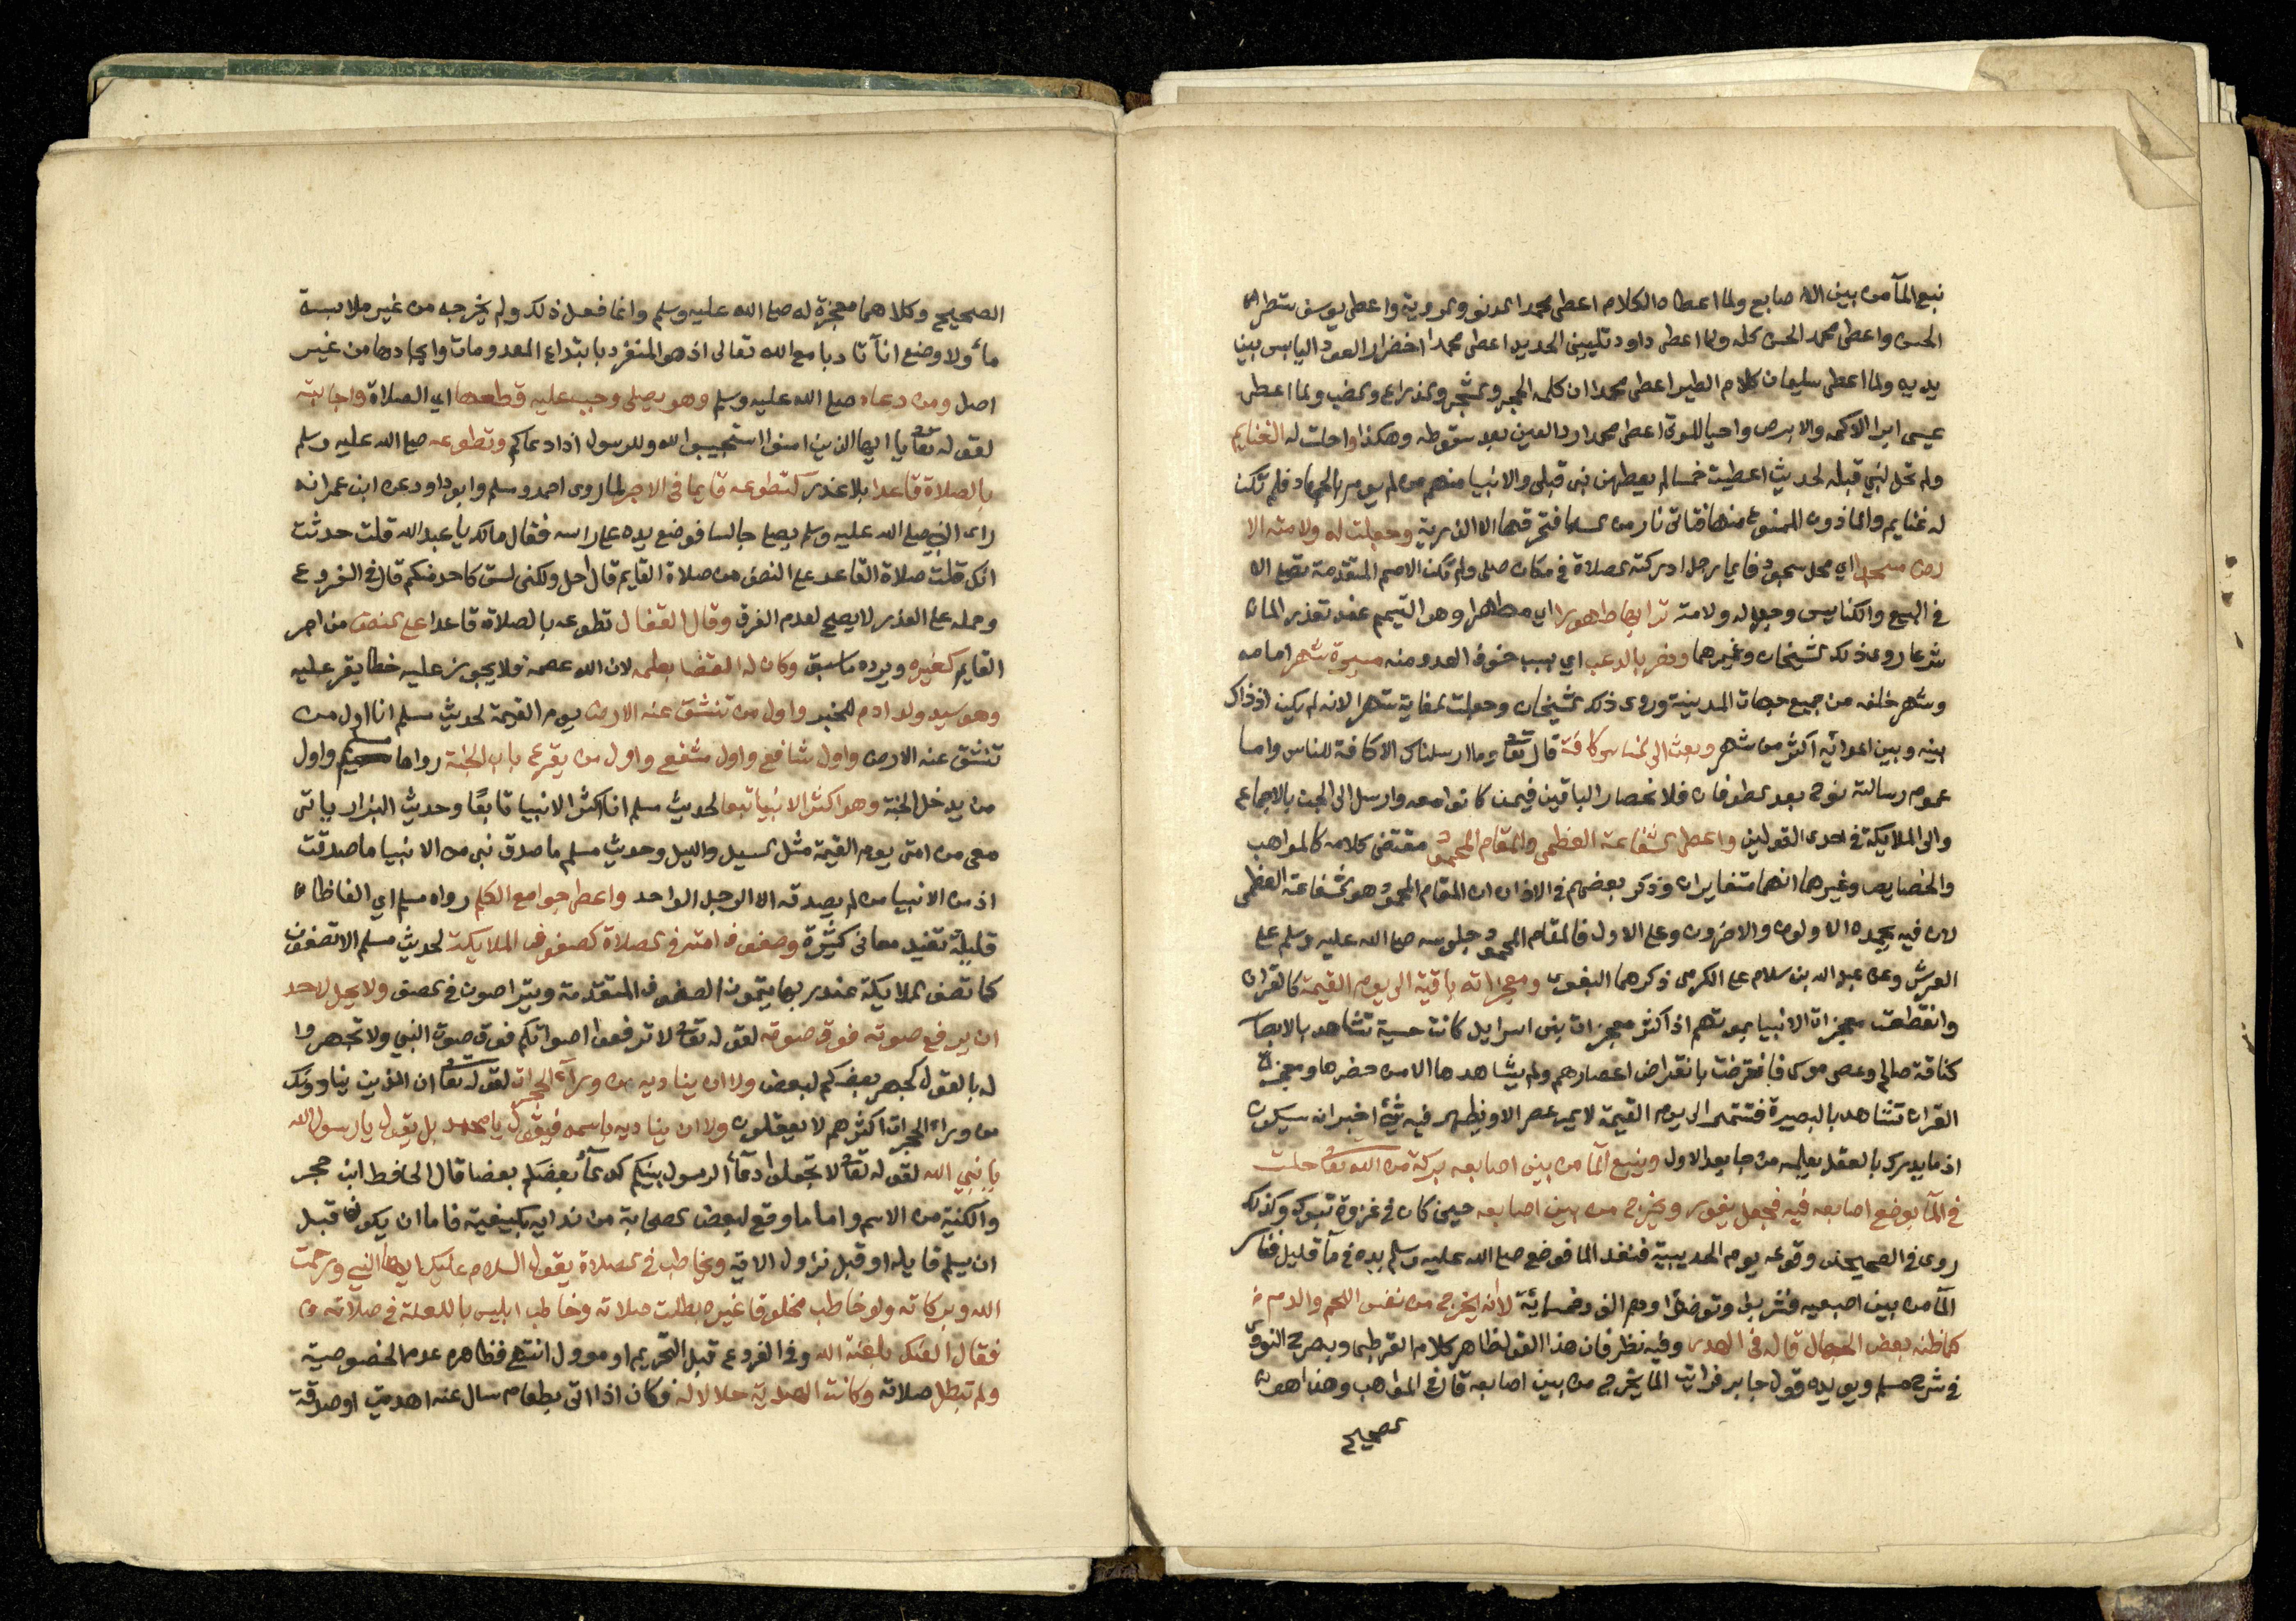 نبع المآ من بين الاصابع ولما اعطاه الكلام اعطى محمدا الدنو والروية واعطى يوسف شطر
الحسن واعطى محمد الحسن كله ولما اعطى داود تليين الحديد اعطى محمدا اخضرار العود اليابس بين
يديه ولما اعطى سليمان كلام الطير اعطى محمدا ان كلمه الحجر والشجر والذراع والضب ولما اعطى
عيسى ابرا الاكمه والابرص واحيا الموتى اعطى محمدا رد العين بعد سقوطها وهكذا واحلت له الغنايم
ولم تحل لنبي قبله لحديث اعطيت خمسا لم يعطهن نبي قبلي والانبيا منهم من لم يومر بالجهاد فلم تكن
له غنايم والماذون الممنوع منها فتاتي نار من السما فتحرقها الا الذرية وجعلت له ولامته الا
رض مسجدا اي محل سجود فايما رجل ادركته الصلاة في مكان صلى ولم تكن الامم المتقدمة تصلي الا
في البيع والكنايس وجعل له ولامته ترابها طهورا اي مطهرا وهو التيمم عند تعذر الما
شرعا روى ذلك الشيخان وغيرهما ونصر بالرعب اي بسبب خوف العدو منه مسيرة شهر امامه
وشهر خلفه من جميع جهات المدينة وروى ذلك الشيخان وجعلت الغاية شهرا لانه لم يكن اذ ذاك
بينه وبين اعدائه اكثر من شهر وبعث الى الناس كافة قال تعا وما ارسلناك الا كافة للناس واما
عموم رسالة نوح بعد الطوفان فلانحصار الباقين فيمن كانوا معه وارسل الى الجن بالاجماع
والى الملايكة في احدى القولين واعطى الشفاعة العظمى والمقام المحمود مقتضى كلامه كالمواهب
والخصايص وغيرهما انهما متغايران وذكر بعضهم في الاذان ان المقام المحمود هو الشفاعة العظمى
لان فيه يحمده الاولون والاخرون وعلى الاول فالمقام المحمود جلوسه صلى الله عليه وسلم على
العرش وعن عبد الله بن سلام على الكرسي ذكرهما البغوي ومعجزاته باقية الى يوم القيمة كالقران
وانقطعت معجزات الانبيا بموتهم اذ اكثر معجزات بني اسرايل كانت حسية تشاهد بالابصار
كناقة صالح وعصى موسى فانقرضت بانقراض اعصارهم ولم يشاهدها الا من حضرها ومعجزة
القران تشاهد بالبصيرة فتستمر الى يوم القيمة لا يمر عصر الا ويظهر فيه شئ اخبر ان سيكون
اذ ما يدرك بالعقل يعلمه من جا بعد الاول وينبع المآ من بين اصابعه بركة من الله تعا حلت
في المآ بوضع اصابعه فيه فجعل يفور ويخرج من بين اصابعه حين كان في غزوة تبوك وكذلك
روى في الصحيحين وقوعه يوم الحديبية فنفد الما فوضع صلى الله عليه وسلم يده في مآ قليل ففار
المآ من بين اصبعيه فشربوا وتوضؤا وهم الف وخمسمائة لا انه يخرج من نفس اللحم والدم
كما ظنه بعض الجهال قاله في الهدى وفيه نظر فان هذا القول ظاهر كلام القرطبي وبه صرح النووي
في شرح مسلم ويويده قول جابر فرايت الما يخرج من بين اصابعه قال في المواهب وهذا هو
الصحيح
الصحيح وكلاهما معجزة له صلى الله عليه وسلم وانما فعل ذلك ولم يخرجه من غير ملابسة
مآ ولا وضع انآ تادبا مع الله تعالى اذ هو المنفرد بابتداع المعدومات وايجادها من غير
اصل ومن دعاه صلى الله عليه وسلم وهو يصلي وجب عليه قطعها اي الصلاة واجابته
لقوله تعا يا ايها الذين امنوا استجيبوا لله وللرسول اذا دعاكم وتطوعه صلى الله عليه وسلم
بالصلاة قاعدا بلا عذر كتطوعه قايما في الاجر لما روى احمد ومسلم وابو داود عن ابن عمر انه
راى النبي صلى الله عليه وسلم يصلي جالسا فوضع يده على راسه فقال مالك يا عبد الله قلت حدثت
انك قلت صلاة القاعد على النصف من صلاة القايم قال اجل ولكني لست كاحد منكم قال في الفروع
وحمله على العذر لا يصح لعدم الفرق وقال القفال تطوعه بالصلاة قاعدا على النصف من اجر
القايم كغيره ويرده ما سبق وكان له القضا بعلمه لان الله عصمه فلا يجوز عليه خطا يقر عليه
وهو سيد ولد ادم للخبر واول من تنشق عنه الارض يوم القيمة لحديث مسلم انا اول من
تنشق عنه الارض واول شافع واول مشفع واول من يقرع باب الجنة رواهما مسلم واول
من يدخل الجنة وهو اكثر الانبيا تبعا لحديث مسلم انا اكثر الانبيا تابعًا وحديث البزار ياتي
معي من امتي يوم القيمة مثل السيل والليل وحديث مسلم ما صدق نبي من الانبيا ما صدقت
اذ من الانبيا من لم يصدقه الا الرجل الواحد واعطى جوامع الكلم رواه مسلم اي الفاظا
قليلة تفيد معاني كثيرة وصفوف امته في الصلاة كصفوف الملايكة لحديث مسلم الا تصفون
كما تصف الملايكة عند ربها يتمون الصفوف المتقدمة ويتراصون في الصف ولا يحل لاحد
ان يرفع صوته فوق صوته لقوله تعا لا ترفعوا اصواتكم فوق صوت النبي ولا تجهروا
له بالقول كجهر بعضكم لبعض ولا ان يناديه من ورآء الحجرات لقوله تعا ان الذين ينادونك
من وراء الحجرات اكثرهم لا يعقلون ولا ان يناديه باسمه فيقول يا محمد بل يقول يا رسول الله
يا نبي الله لقوله تعا لا تجعلوا دعآء الرسول بينكم كدعآء بعضكم بعضا قال الحافظ ابن حجر
والكنية من الاسم واما ما وقع لبعض الصحابة من ندايه بكنيته فاما ان يكون قبل
ان يسلم قايله او قبل نزول الاية ويخاطب في الصلاة بقول السلام عليك ايها النبي ورحمت
الله وبركاته ولو خاطب مخلوقا غيره بطلت صلاته وخاطب ابليس باللعنة في صلاته
فقال العنك بلعنة الله وفي الفروع قبل التحريم او موول انتهى فظاهره عدم الخصوصية
ولم تبطل صلاته وكانت الهدية حلالا له فكان اذا اتي بطعام سال عنه اهدية او صدقة